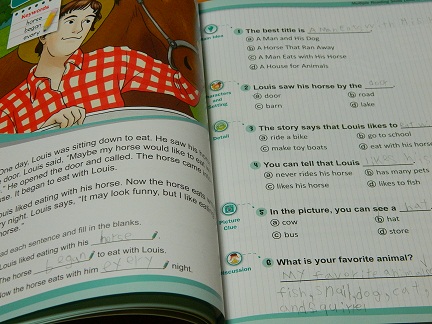 Keywords
horse
began
every
One day, Louis was sitting down to eat. He saw his
door. Louis said, "Maybe my horse would like to eat
He opened the door and called. The horse came
It began to eat with Louis.
Louis liked eating with his horse. Now the horse eats
night. Louis says, "It may look funny, but I like
horse."
each sentence and fill in the blanks.
Louis liked eating with his horse.
The horse began to eat with Louis.
Now the horse eats with him every night.
Main Idea
1 The best title is A Man
ⓐ A Man and His Dog
ⓑ A Horse That Ran Away
ⓒ A Man Eats with His Horse
ⓓ A House for Animals
Characters and Setting
2 Louis saw his horse by the door
ⓐ door ⓑ road
ⓒ barn ⓓ lake
Detail
3 The story says that Louis likes to eat
ⓐ ride a bike ⓑ go to school
ⓒ make toy boats ⓓ eat with his horse
4 You can tell that Louis likes
ⓐ never rides his horse ⓑ has many pets
ⓒ likes his horse ⓓ likes to fish
Picture Clue
5 In the picture, you can see a hat
ⓐ cow ⓑ hat
ⓒ bus ⓓ store
Discussion
6 What is your favorite animal?
My favorite
fish, snail, dog, cat,
and squirrel